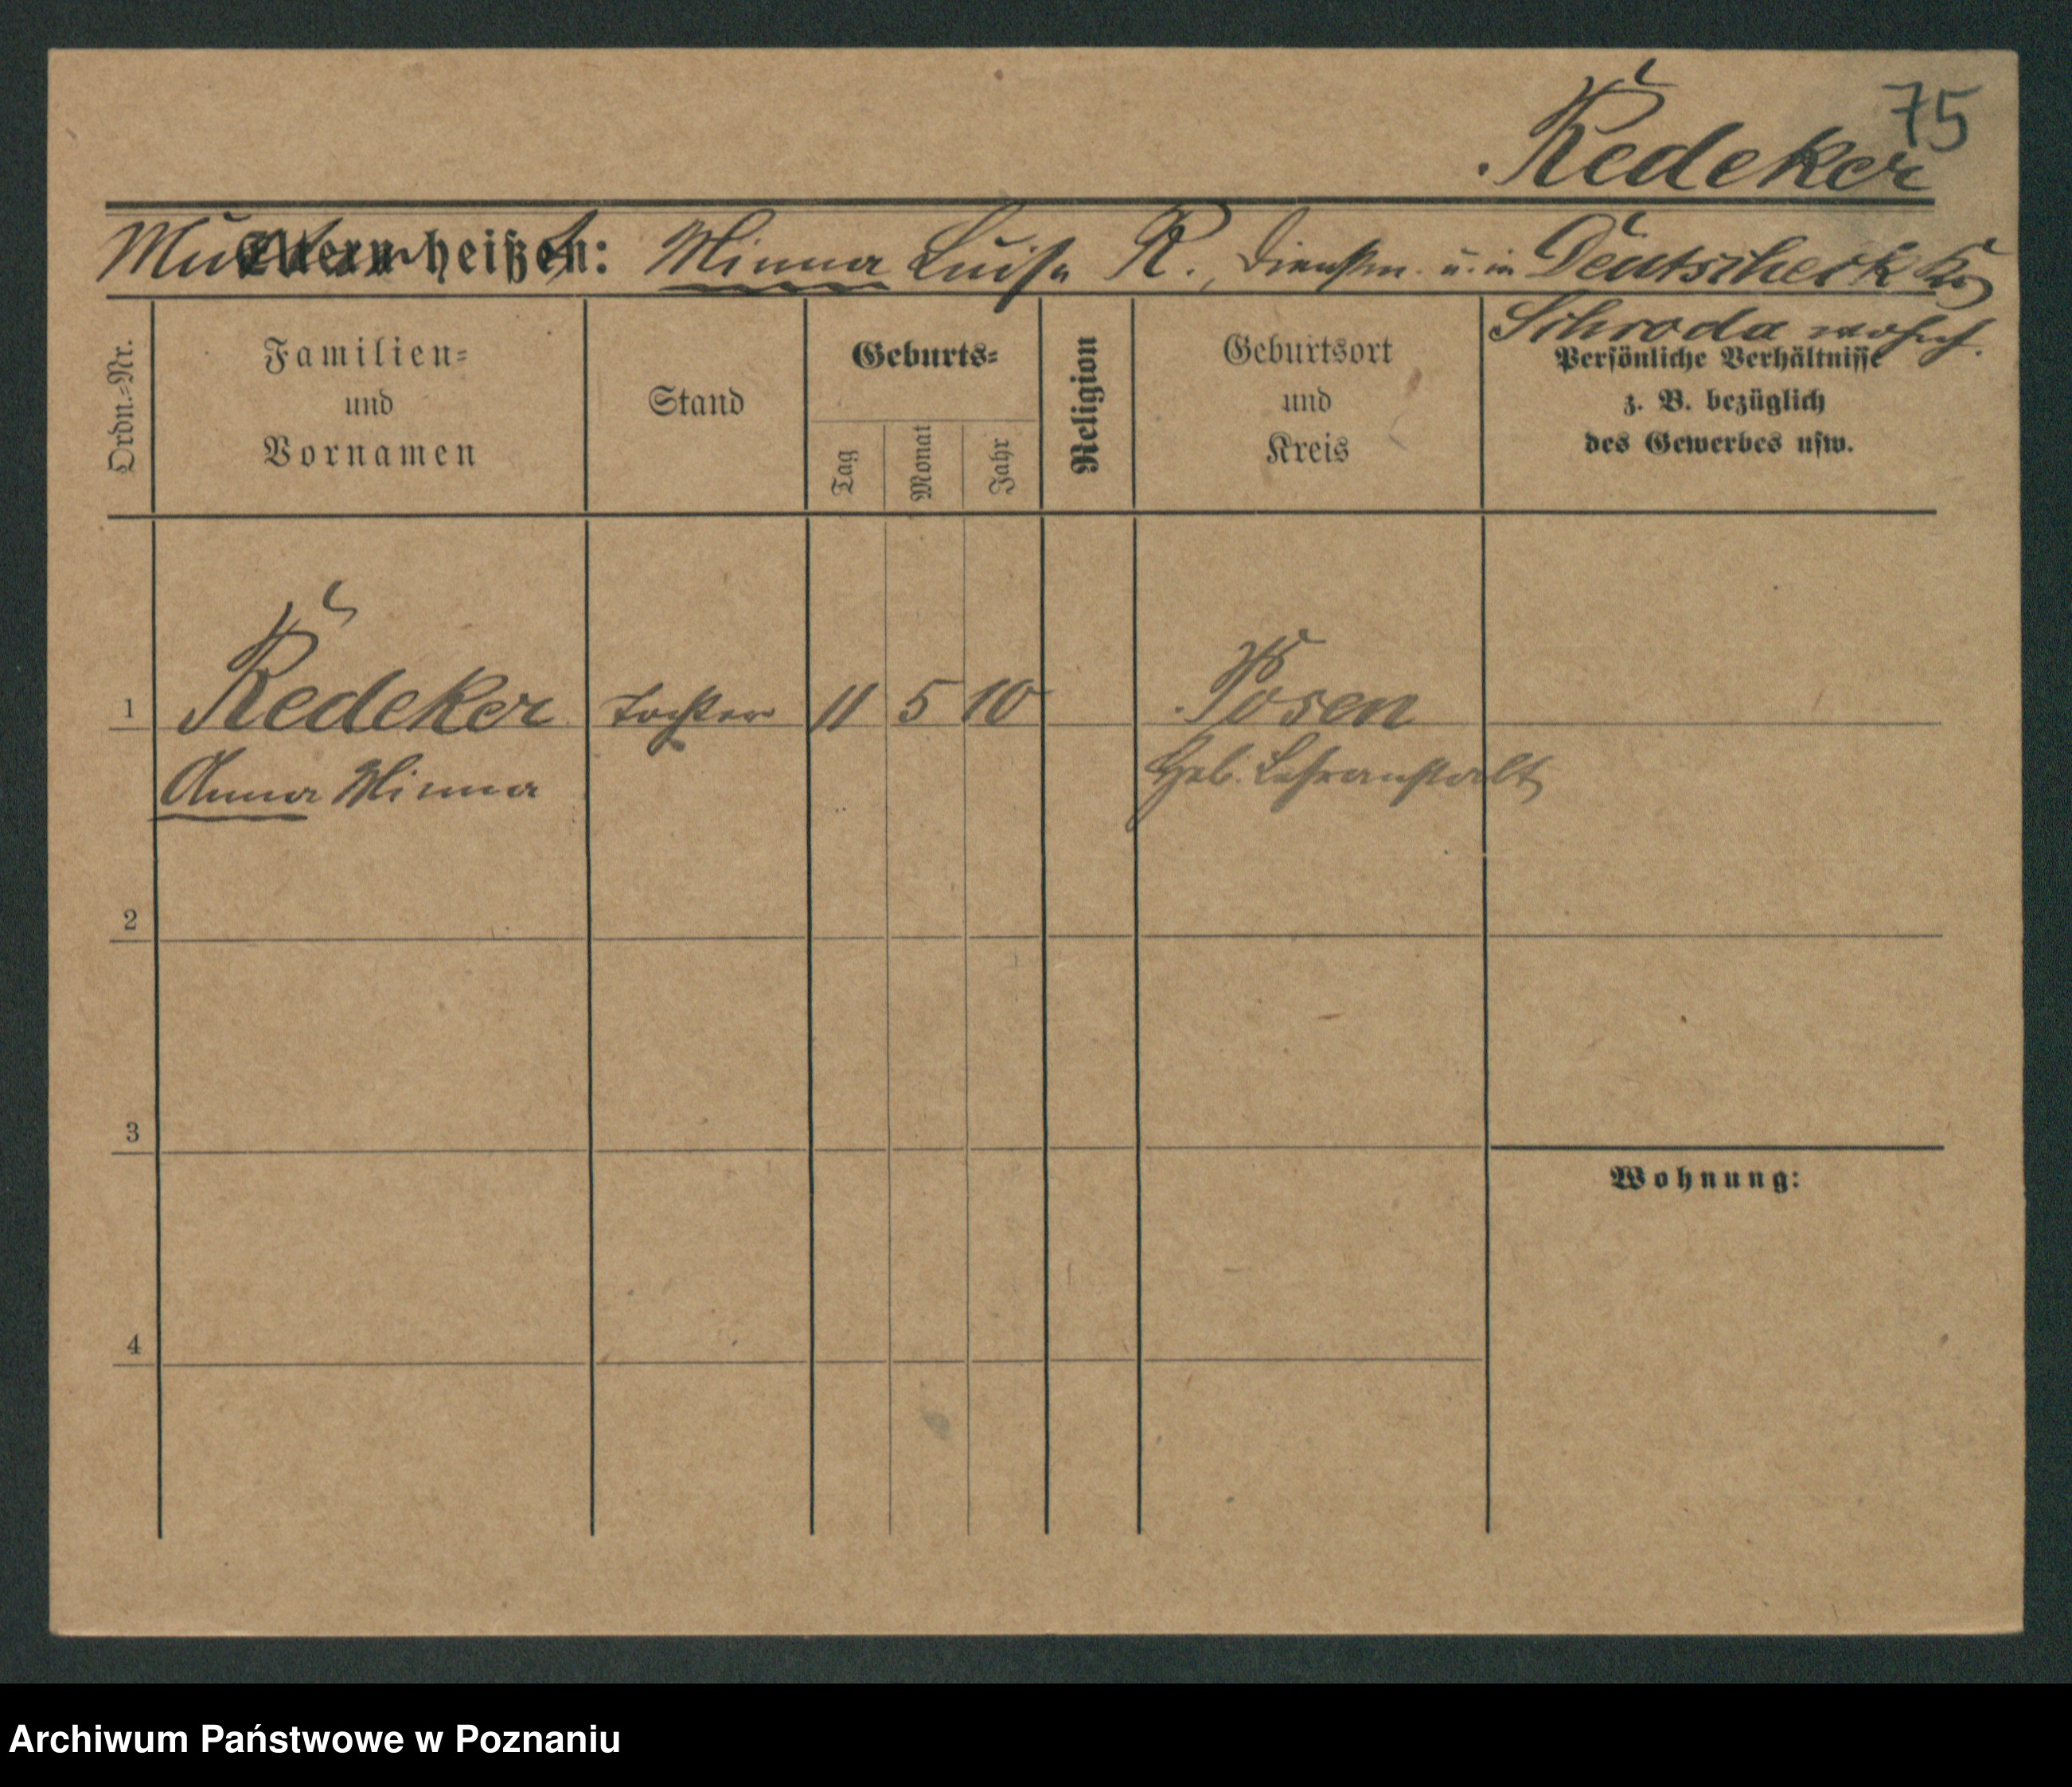 75
Redeker
Mutter heißt: Minna Luise R., Dienstm. u. in Deutscheck Kr.
Schroda wohnh.
Ordn.=Nr.
Familien=
und
Vornamen
Stand
Geburts=
Tag
Monat
Jahr
Religion
Geburtsort
und
Kreis
Persönliche Verhältnisse
z. B. bezüglich
des Gewerbes usw.
1 Redeker Tochter 11 5 10 Posen
Anna Minna Heb. Lehranstalt
2
3
Wohnung:
4
Archiwum Państwowe w Poznaniu